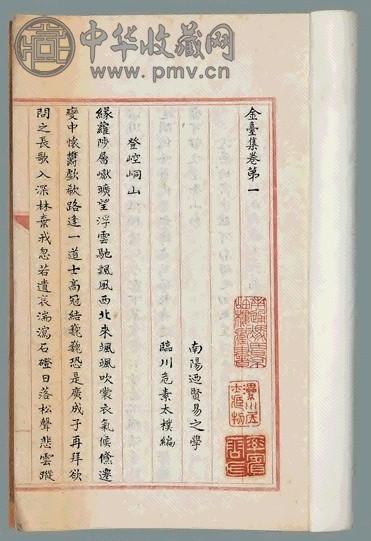 中华收藏网
www.pmv.cn
金臺集卷第一
南陽迺賢易之學
臨川危素太樸編
登崆峒山
緣蘿陟層巘曠望浮雲馳飄風西北來颯颯吹裳衣氣候倏遷
變中懷鬱歔欷路逢一道士高冠結巍巍恐是廣成子再拜欲
問之長歌入深林棄我忽若遺哀湍瀉石磴日落松聲悲雲蹤